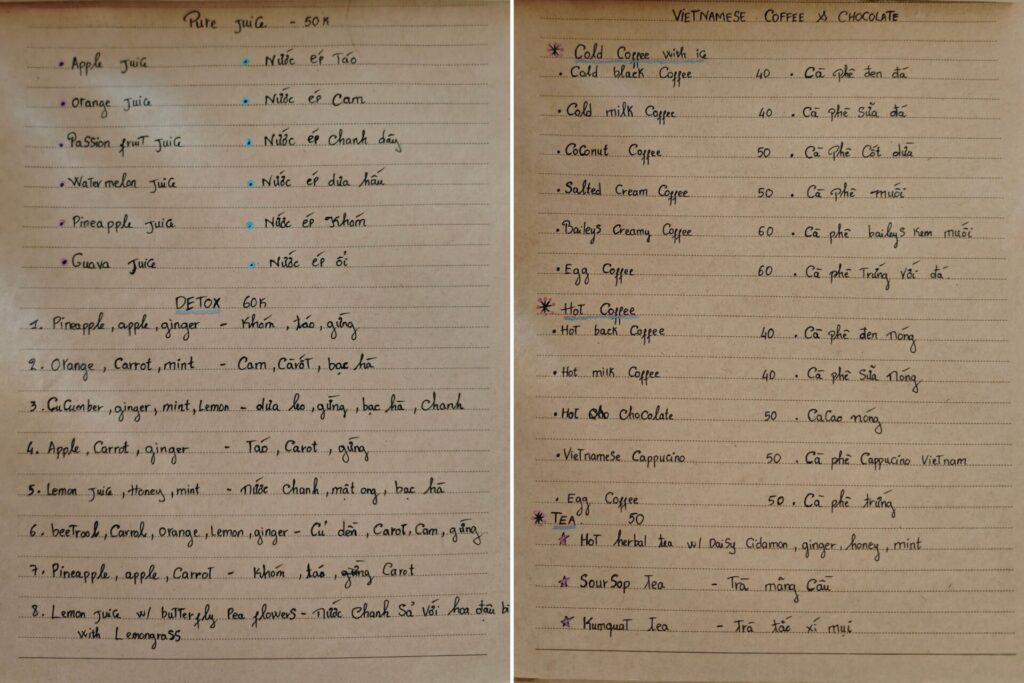 Pure juice - 50K
• Apple juice • Nước ép Táo
• Orange juice • Nước ép Cam
• Passion fruit juice • Nước ép chanh dây
• Watermelon juice • Nước ép dưa hấu
• Pineapple juice • Nước ép Khóm
• Guava juice • Nước ép ổi
DETOX 60K
1. Pineapple, apple, ginger - Khóm, táo, gừng
2. Orange, Carrot, mint - Cam, Càrốt, bạc hà
3. Cucumber, ginger, mint, Lemon - dưa leo, gừng, bạc hà, Chanh
4. Apple, Carrot, ginger - Táo, Carot, gừng
5. Lemon juice, Honey, mint - nước Chanh, mật ong, bạc hà
6. beetrook, Carrot, orange, Lemon, ginger - Củ dền, Carot, Cam, gừng
7. Pineapple, apple, Carrot - Khóm, táo, Carot
8. Lemon juice w/ butterfly Pea flowers - nước Chanh Sả với hoa đậu bi
with Lemongrass
VIETNAMESE COFFEE & CHOCOLATE
* Cold Coffee with ice
• Cold black Coffee 40 • Cà phê đen đá
• Cold milk Coffee 40 • Cà phê Sữa đá
• Coconut Coffee 50 • Cà Phê Cốt dừa
• Salted Cream Coffee 50 • Cà phê muối
• Baileys Creamy Coffee 60 • Cà phê baileys Kem muối
• Egg Coffee 60 • Cà phê Trứng với đá
* Hot Coffee
• Hot back Coffee 40 • Cà phê đen nóng
• Hot milk Coffee 40 • Cà phê Sữa nóng
• Hot Chocolate 50 • CaCao nóng
• Vietnamese Cappucino 50 • Cà phê Cappucino Vietnam
• Egg Coffee 50 • Cà phê trứng
* TEA 50
☆ Hot herbal tea w/ Daisy Cidamon, ginger, honey, mint
☆ SourSop Tea - Trà mãng Cầu
☆ Kumquat Tea - Trà tắc xí muội